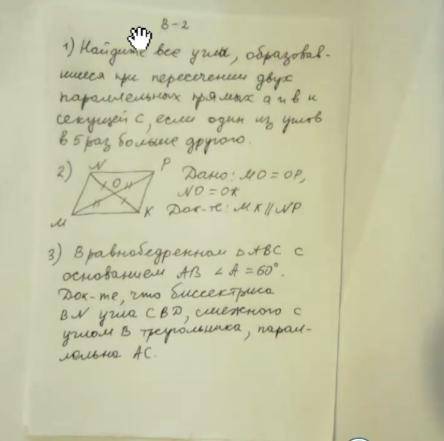 В-2
1) Найдите все углы, образовав-
шиеся при пересечении двух
параллельных прямых а и в и
секущей С, если один из углов
в 5 раз больше другого.
2) N P
О
M K
Дано: MO = OP,
NO = OK
Док-ть: MK || NP
3) В равнобедренном ΔABC с
основанием AB ∠A = 60°.
Док-те, что биссектриса
BN угла CBD, смежного с
углом B треугольника, парал-
лольна AC.